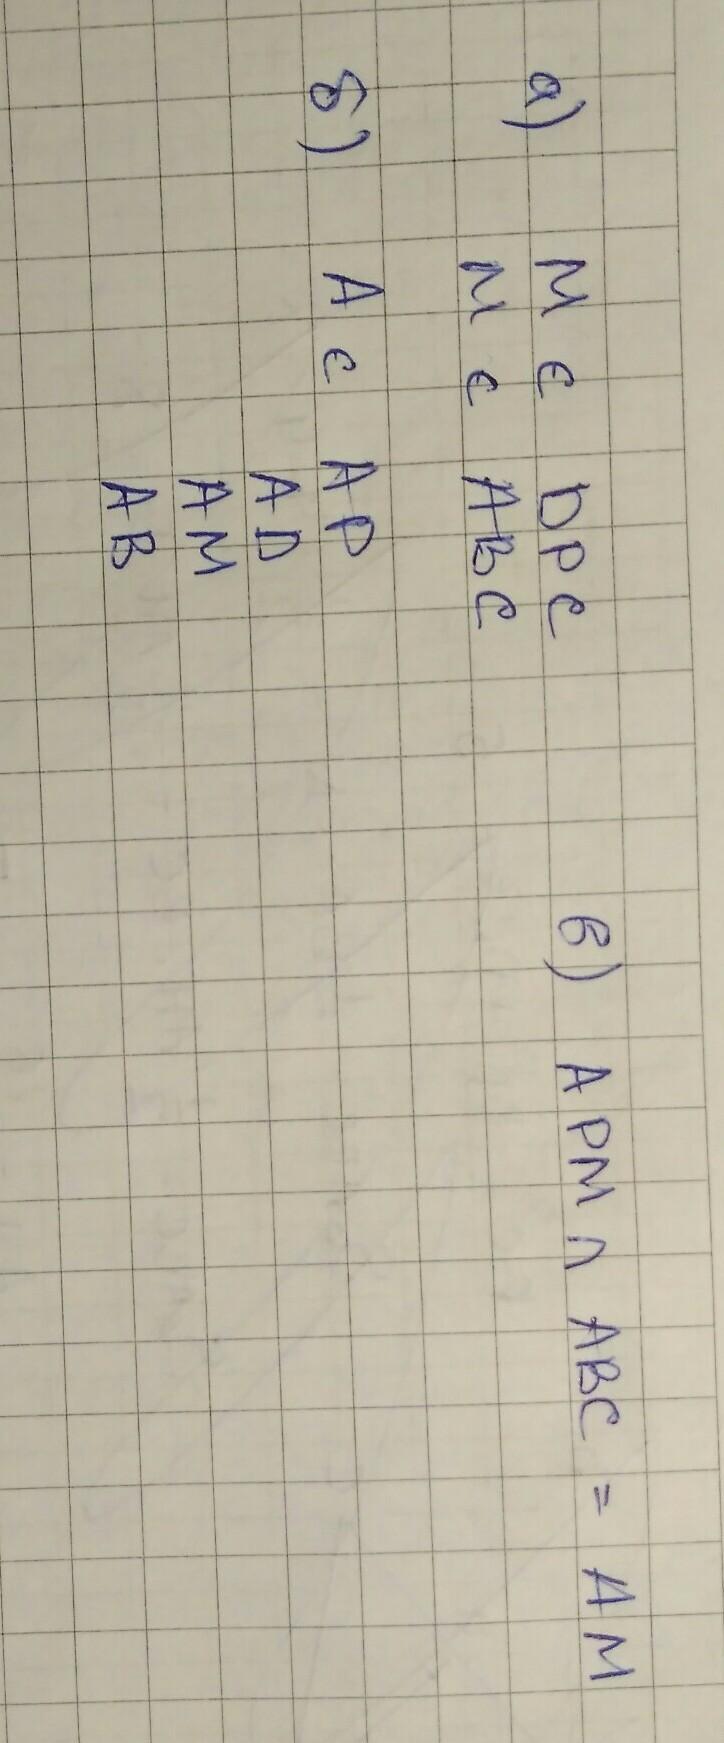 а) M ∈ DPC
M ∈ ABC
б) A ∈ AP
AD
AM
AB
в) APM ∩ ABC = AM